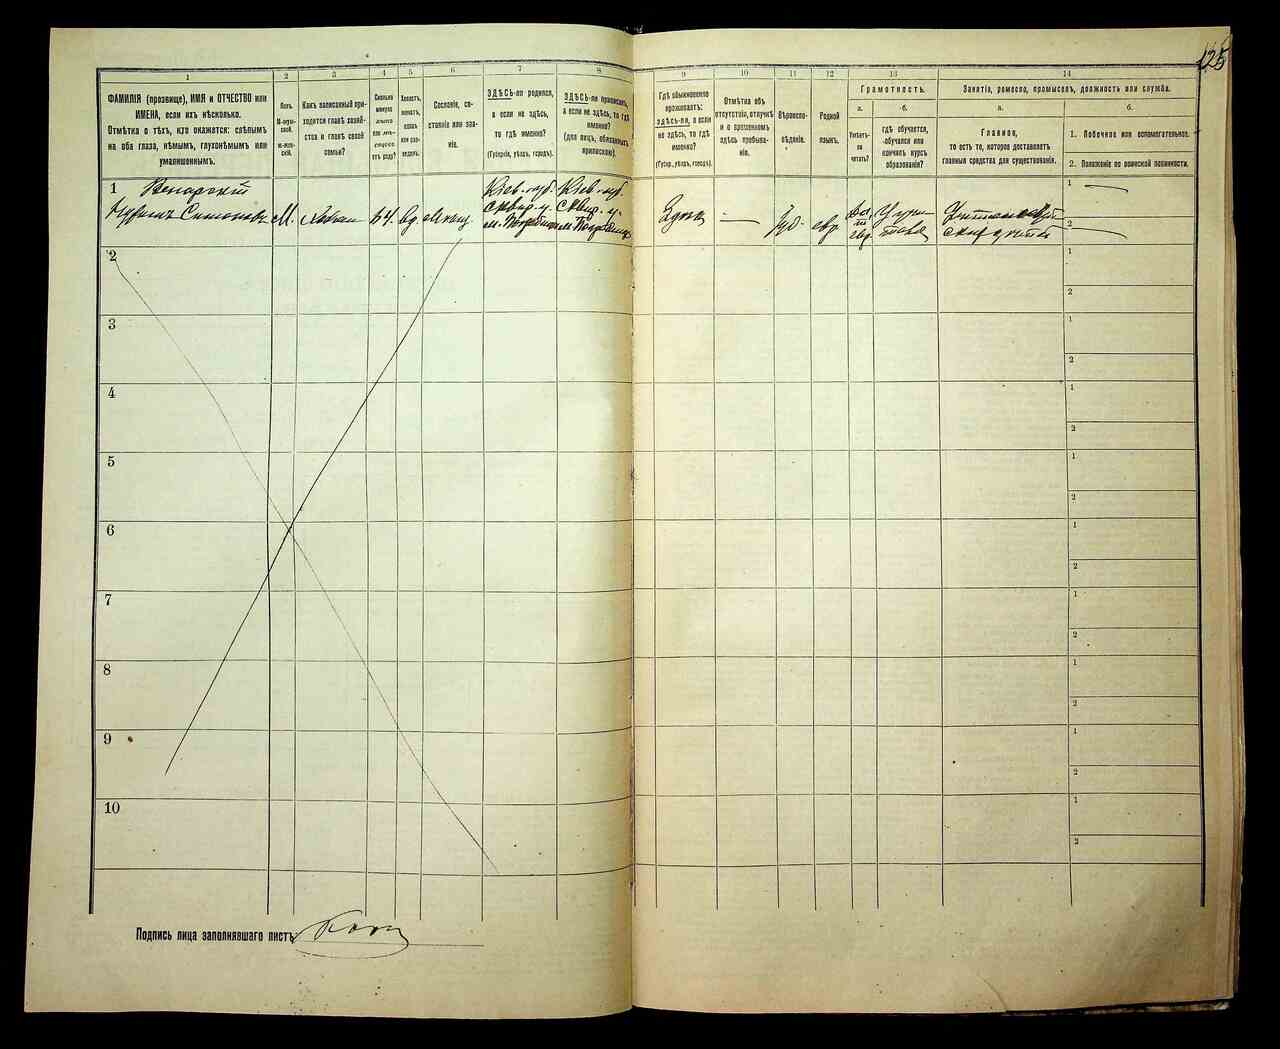 125
1
2
3
4
5
6
7
8
9
10
11
12
13
14
ФАМИЛІЯ (прозвище), ИМЯ и ОТЧЕСТВО или
ИМЕНА, если ихъ нѣсколько.
Отмѣтка о тѣхъ, кто окажется: слѣпымъ
на оба глаза, нѣмымъ, глухонѣмымъ или
умалишеннымъ.
Полъ.
М-муж-
ской.
Ж-жен-
скій.
Какъ записанный при-
ходится главѣ хозяй-
ства и главѣ своей
семьи?
Сколько
минуло
лѣтъ
или мѣс-
яцевъ
отъ роду?
Холостъ,
женатъ,
вдовъ
или раз-
веденъ.
Сословіе, со-
стояніе или зва-
ніе.
ЗДѢСЬ-ли родился,
а если не здѣсь,
то гдѣ именно?
(Губернія, уѣздъ, городъ).
ЗДѢСЬ-ли приписанъ,
а если не здѣсь, то гдѣ
именно?
(для лицъ, обязанныхъ
припискою).
Гдѣ обыкновенно
проживаетъ:
здѣсь-ли, а если
не здѣсь, то гдѣ
именно?
(Губер., уѣздъ, городъ).
Отмѣтка объ
отсутствіи, отлучкѣ
и о временномъ
здѣсь пребыва-
ніи.
Вѣроиспо-
вѣданіе.
Родной
языкъ.
Грамотность.
а.
Умѣетъ-
ли
читать?
б.
гдѣ обучается,
обучался или
кончилъ курсъ
образованія?
Занятіе, ремесло, промыселъ, должность или служба.
а.
Главное,
то есть то, которое доставляетъ
главныя средства для существованія.
б.
1. Побочное или вспомогательное.
2. Положеніе по воинской повинности.
1
М.
64
вд.
Кіев. губ.
Сквир. у.
Кіев. губ.
Сквир. у.
—
Іуд.
евр.
1
2
2
1
2
3
1
2
4
1
2
5
1
2
6
1
2
7
1
2
8
1
2
9
1
2
10
1
2
Подпись лица заполнявшаго листъ